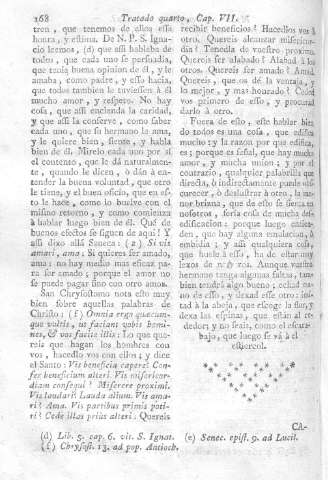 168 Tratado quarto, Cap. VII.
tren, que tenemos de ellos essa
honra, y estima. De N. P. S. Igna-
cio leemos, (d) que assi hablaba de
todos, que cada uno se persuadia,
que tenia buena opinion de él, y le
amaba, como padre, y esso hacia,
que todos tambien le tuviessen à él
mucho amor, y respeto. No hay
cosa, que assi encienda la caridad,
y que assi la conserve, como saber
cada uno, que su hermano le ama,
y le quiere bien, siente, y habla
bien de él. Mirelo cada uno por sì
el contento, que le dá naturalmen-
te, quando le dicen, ò dán à en-
tender la buena voluntad, que otro
le tiene, y el buen oficio, que en es-
to le hace, como lo buelve con el
mismo retorno, y como comienza
à hablar luego bien de él. Qué de
buenos efectos se siguen de aì! Y
assi dixo allà Seneca: (e) Si vis
amari, ama: Si quieres ser amado,
ama: no hay medio mas eficaz pa-
ra ser amado; porque el amor no
se puede pagar sino con otro amor.
San Chrysostomo nota esto muy
bien sobre aquellas palabras de
Christo: (f) Omnia ergo quæcum-
que vultis, ut faciant vobis homi-
nes, & vos facite illis: Lo que que-
reis que hagan los hombres con
vos, hacedlo vos con ellos; y dice
el Santo: Vis beneficia capere? Con-
fer beneficium alteri. Vis misericor-
diam consequi? Miserere proximi.
Vis laudari? Lauda alium. Vis ama-
ri? Ama. Vis partibus primis poti-
ri? Cede illas prius alteri. Quereis
recibir beneficios? Hacedlos vos à
otro. Quereis alcanzar misericor-
dia? Tenedla de vuestro proximo.
Quereis ser alabado? Alabad à los
otros. Quereis ser amado? Amad.
Quereis, que os dé la ventaja, y
lo mejor, y mas honrado? Ceded
vos primero de esso, y procurad
darlo à otro.
Fuera de esto, este hablar bien
de todos es una cosa, que edifica
mucho y la razon por que edifica,
es; porque es señal, que hay mucho
amor, y mucha union; y por el
contrario, qualquier palabrilla que
directa, ò indirectamente puede obs-
curecer, ò deslustrar à otro, la me-
nor brizna, que de esto se sienta en
nosotros, seria cosa de mucha des-
edificacion; porque luego entien-
den, que hay alguna emulacion, ò
embidia; y assi qualquiera cosa,
que huela à esso, ha de estar muy
lexos de nosotros. Aunque vuestro
hermano tenga algunas faltas, tam-
bien tendrá algo bueno; echad ma-
no de esso, y dexad esse otro: imi-
tad à la abeja, que escoge la flor, y
dexa las espinas, que están al re-
dedor; y no seais, como el escara-
bajo, que luego se vá à el
estiercol.
CA-
(d) Lib. 5. cap. 6. vit. S. Ignat. (e) Senec. epist. 9. ad Lucil.
(f) Chrysost. 13. ad pop. Antioch.